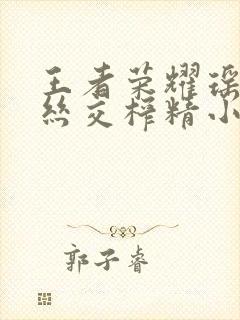 王者荣耀瑶
丝交榨精小
郭子睿